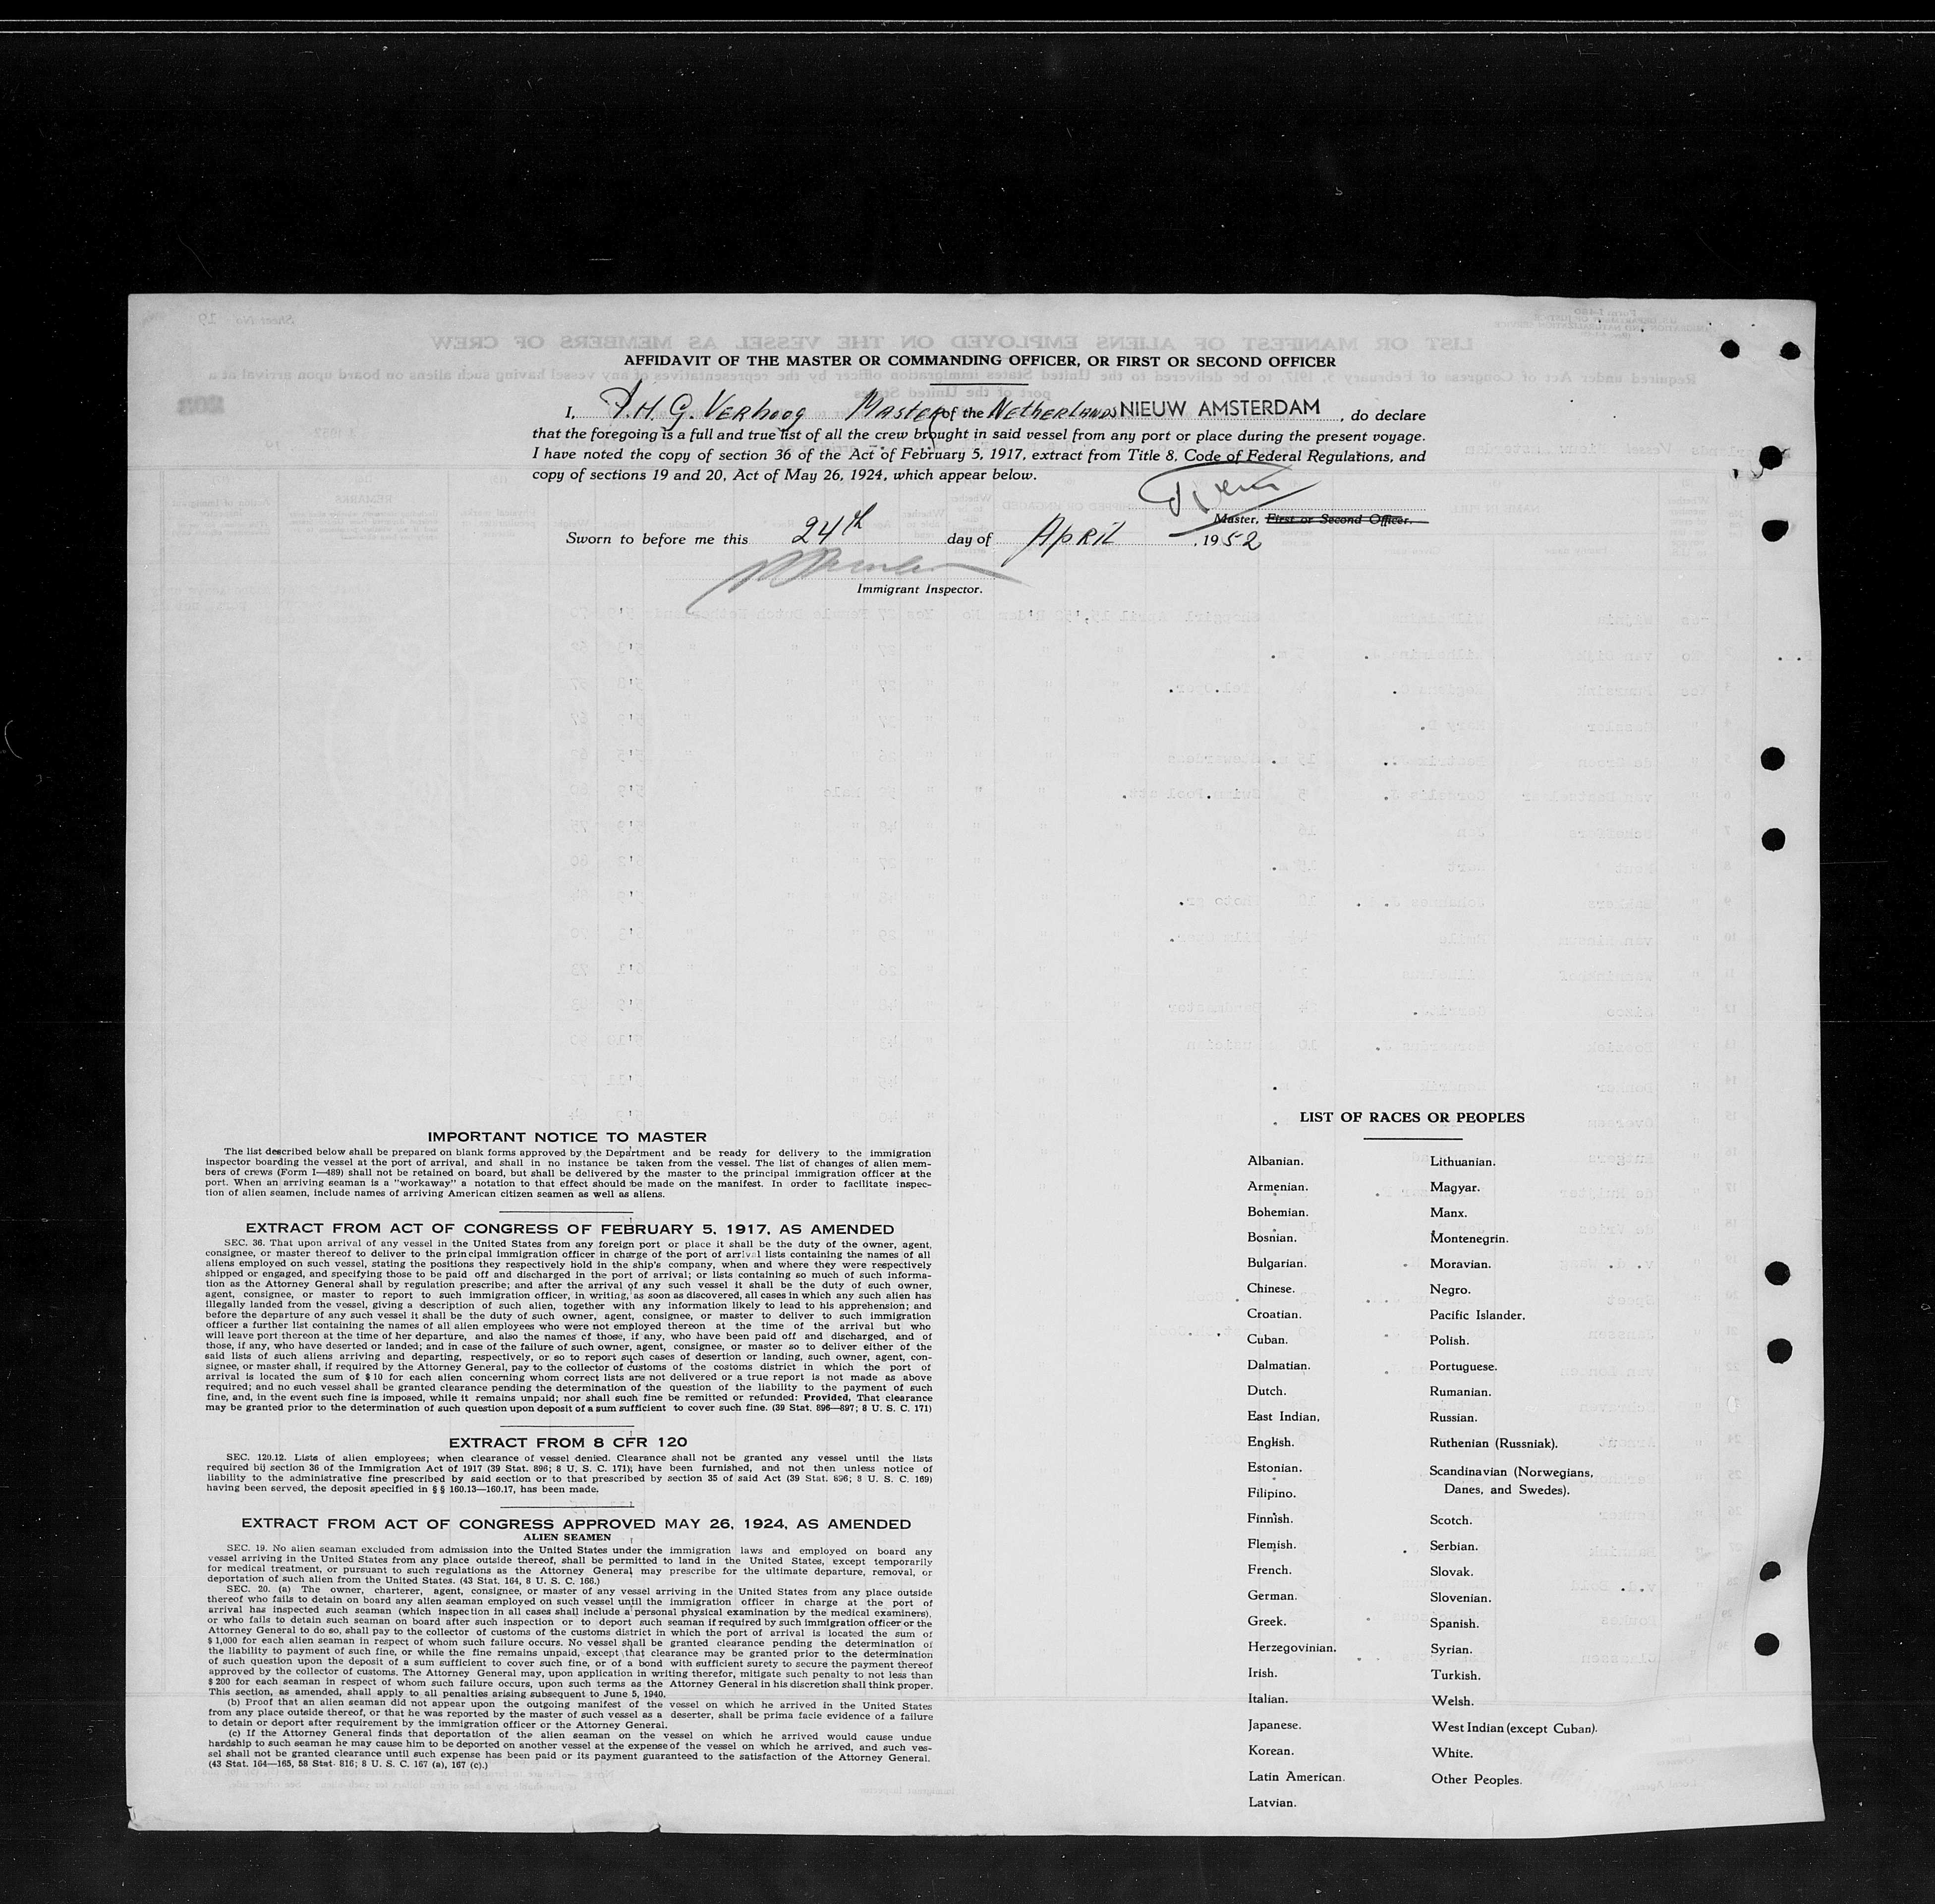 AFFIDAVIT OF THE MASTER OR COMMANDING OFFICER, OR FIRST OR SECOND OFFICER
I, H. G. Verhoog Master of the Netherlands NIEUW AMSTERDAM, do declare
that the foregoing is a full and true list of all the crew brought in said vessel from any port or place during the present voyage.
I have noted the copy of section 36 of the Act of February 5, 1917, extract from Title 8, Code of Federal Regulations, and
copy of sections 19 and 20, Act of May 26, 1924, which appear below.
Master, First or Second Officer.
Sworn to before me this 24th day of April, 1952
Immigrant Inspector.
IMPORTANT NOTICE TO MASTER
The list described below shall be prepared on blank forms approved by the Department and be ready for delivery to the immigration
inspector boarding the vessel at the port of arrival, and shall in no instance be taken from the vessel. The list of changes of alien mem-
bers of crews (Form I—489) shall not be retained on board, but shall be delivered by the master to the principal immigration officer at the
port. When an arriving seaman is a "workaway" a notation to that effect should be made on the manifest. In order to facilitate inspec-
tion of alien seamen, include names of arriving American citizen seamen as well as aliens.
EXTRACT FROM ACT OF CONGRESS OF FEBRUARY 5, 1917, AS AMENDED
SEC. 36. That upon arrival of any vessel in the United States from any foreign port or place it shall be the duty of the owner, agent,
consignee, or master thereof to deliver to the principal immigration officer in charge of the port of arrival lists containing the names of all
aliens employed on such vessel, stating the positions they respectively hold in the ship's company, when and where they were respectively
shipped or engaged, and specifying those to be paid off and discharged in the port of arrival; or lists containing so much of such informa-
tion as the Attorney General shall by regulation prescribe; and after the arrival of any such vessel it shall be the duty of such owner,
agent, consignee, or master to report to such immigration officer, in writing, as soon as discovered, all cases in which any such alien has
illegally landed from the vessel, giving a description of such alien, together with any information likely to lead to his apprehension; and
before the departure of any such vessel it shall be the duty of such owner, agent, consignee, or master to deliver to such immigration
officer a further list containing the names of all alien employees who were not employed thereon at the time of the arrival but who
will leave port thereon at the time of her departure, and also the names of those, if any, who have been paid off and discharged, and of
those, if any, who have deserted or landed; and in case of the failure of such owner, agent, consignee, or master so to deliver either of the
said lists of such aliens arriving and departing, respectively, or so to report such cases of desertion or landing, such owner, agent, con-
signee, or master shall, if required by the Attorney General, pay to the collector of customs of the costoms district in which the port of
arrival is located the sum of $10 for each alien concerning whom correct lists are not delivered or a true report is not made as above
required; and no such vessel shall be granted clearance pending the determination of the question of the liability to the payment of such
fine, and, in the event such fine is imposed, while it remains unpaid; nor shall such fine be remitted or refunded: Provided, That clearance
may be granted prior to the determination of such question upon deposit of a sum sufficient to cover such fine. (39 Stat. 896—897; 8 U. S. C. 171)
EXTRACT FROM 8 CFR 120
SEC. 120.12. Lists of alien employees; when clearance of vessel denied. Clearance shall not be granted any vessel until the lists
required bij section 36 of the Immigration Act of 1917 (39 Stat. 896; 8 U. S. C. 171); have been furnished, and not then unless notice of
liability to the administrative fine prescribed by said section or to that prescribed by section 35 of said Act (39 Stat. 896; 8 U. S. C. 169)
having been served, the deposit specified in § § 160.13—160.17, has been made.
EXTRACT FROM ACT OF CONGRESS APPROVED MAY 26, 1924, AS AMENDED
ALIEN SEAMEN
SEC. 19. No alien seaman excluded from admission into the United States under the immigration laws and employed on board any
vessel arriving in the United States from any place outside thereof, shall be permitted to land in the United States, except temporarily
for medical treatment, or pursuant to such regulations as the Attorney General may prescribe for the ultimate departure, removal, or
deportation of such alien from the United States. (43 Stat. 164, 8 U. S. C. 166.)
SEC. 20. (a) The owner, charterer, agent, consignee, or master of any vessel arriving in the United States from any place outside
thereof who fails to detain on board any alien seaman employed on such vessel until the immigration officer in charge at the port of
arrival has inspected such seaman (which inspection in all cases shall include a personal physical examination by the medical examiners),
or who fails to detain such seaman on board after such inspection or to deport such seaman if required by such immigration officer or the
Attorney General to do so, shall pay to the collector of customs of the customs district in which the port of arrival is located the sum of
$1,000 for each alien seaman in respect of whom such failure occurs. No vessel shall be granted clearance pending the determination of
the liability to payment of such fine, or while the fine remains unpaid, except that clearance may be granted prior to the determination
of such question upon the deposit of a sum sufficient to cover such fine, or of a bond with sufficient surety to secure the payment thereof
approved by the collector of customs. The Attorney General may, upon application in writing therefor, mitigate such penalty to not less than
$200 for each seaman in respect of whom such failure occurs, upon such terms as the Attorney General in his discretion shall think proper.
This section, as amended, shall apply to all penalties arising subsequent to June 5, 1940.
(b) Proof that an alien seaman did not appear upon the outgoing manifest of the vessel on which he arrived in the United States
from any place outside thereof, or that he was reported by the master of such vessel as a deserter, shall be prima facie evidence of a failure
to detain or deport after requirement by the immigration officer or the Attorney General.
(c) If the Attorney General finds that deportation of the alien seaman on the vessel on which he arrived would cause undue
hardship to such seaman he may cause him to be deported on another vessel at the expense of the vessel on which he arrived, and such ves-
sel shall not be granted clearance until such expense has been paid or its payment guaranteed to the satisfaction of the Attorney General.
(43 Stat. 164—165, 58 Stat. 816; 8 U. S. C. 167 (a), 167 (c).)
LIST OF RACES OR PEOPLES
Albanian.
Armenian.
Bohemian.
Bosnian.
Bulgarian.
Chinese.
Croatian.
Cuban.
Dalmatian.
Dutch.
East Indian.
English.
Estonian.
Filipino.
Finnish.
Flemish.
French.
German.
Greek.
Herzegovinian.
Irish.
Italian.
Japanese.
Korean.
Latin American.
Latvian.
Lithuanian.
Magyar.
Manx.
Montenegrin.
Moravian.
Negro.
Pacific Islander.
Polish.
Portuguese.
Rumanian.
Russian.
Ruthenian (Russniak).
Scandinavian (Norwegians,
Danes, and Swedes).
Scotch.
Serbian.
Slovak.
Slovenian.
Spanish.
Syrian.
Turkish.
Welsh.
West Indian (except Cuban).
White.
Other Peoples.